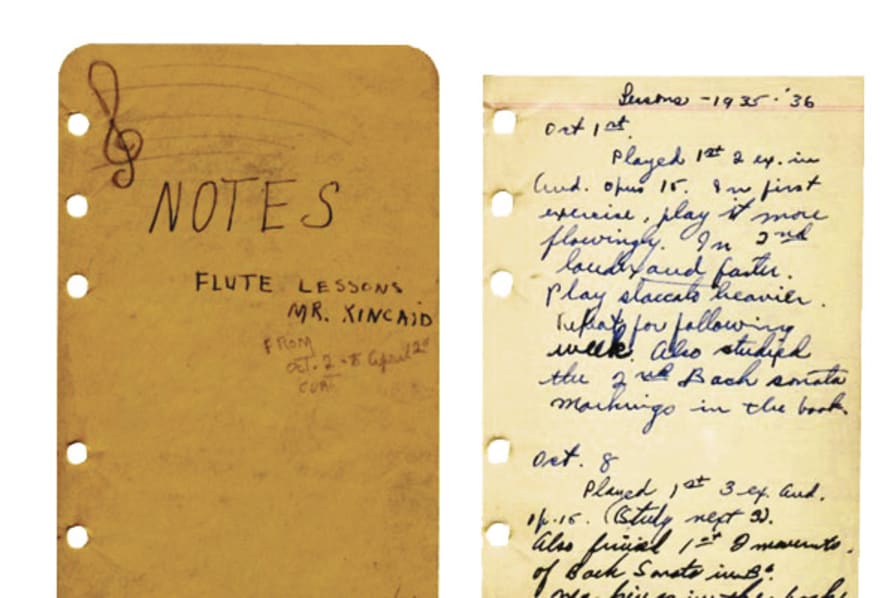 NOTES
FLUTE LESSONS
MR. KINCAID
FROM
Oct. 2 - April 12
Lessons - 1935 - '36
Oct 1st.
Played 1st 2 ex. in
And. opus 15. In first
exercise, play it more
flowingly. In 2nd
louder and faster.
Play staccato heavier.
Repeat for following
week. Also studied
the 2nd Bach sonata
markings in the book.
Oct. 8
Played 1st 3 ex. And.
op. 15. (Study next 3).
Also finish 1st 2 movements.
of Bach Sonata in
markings in the book